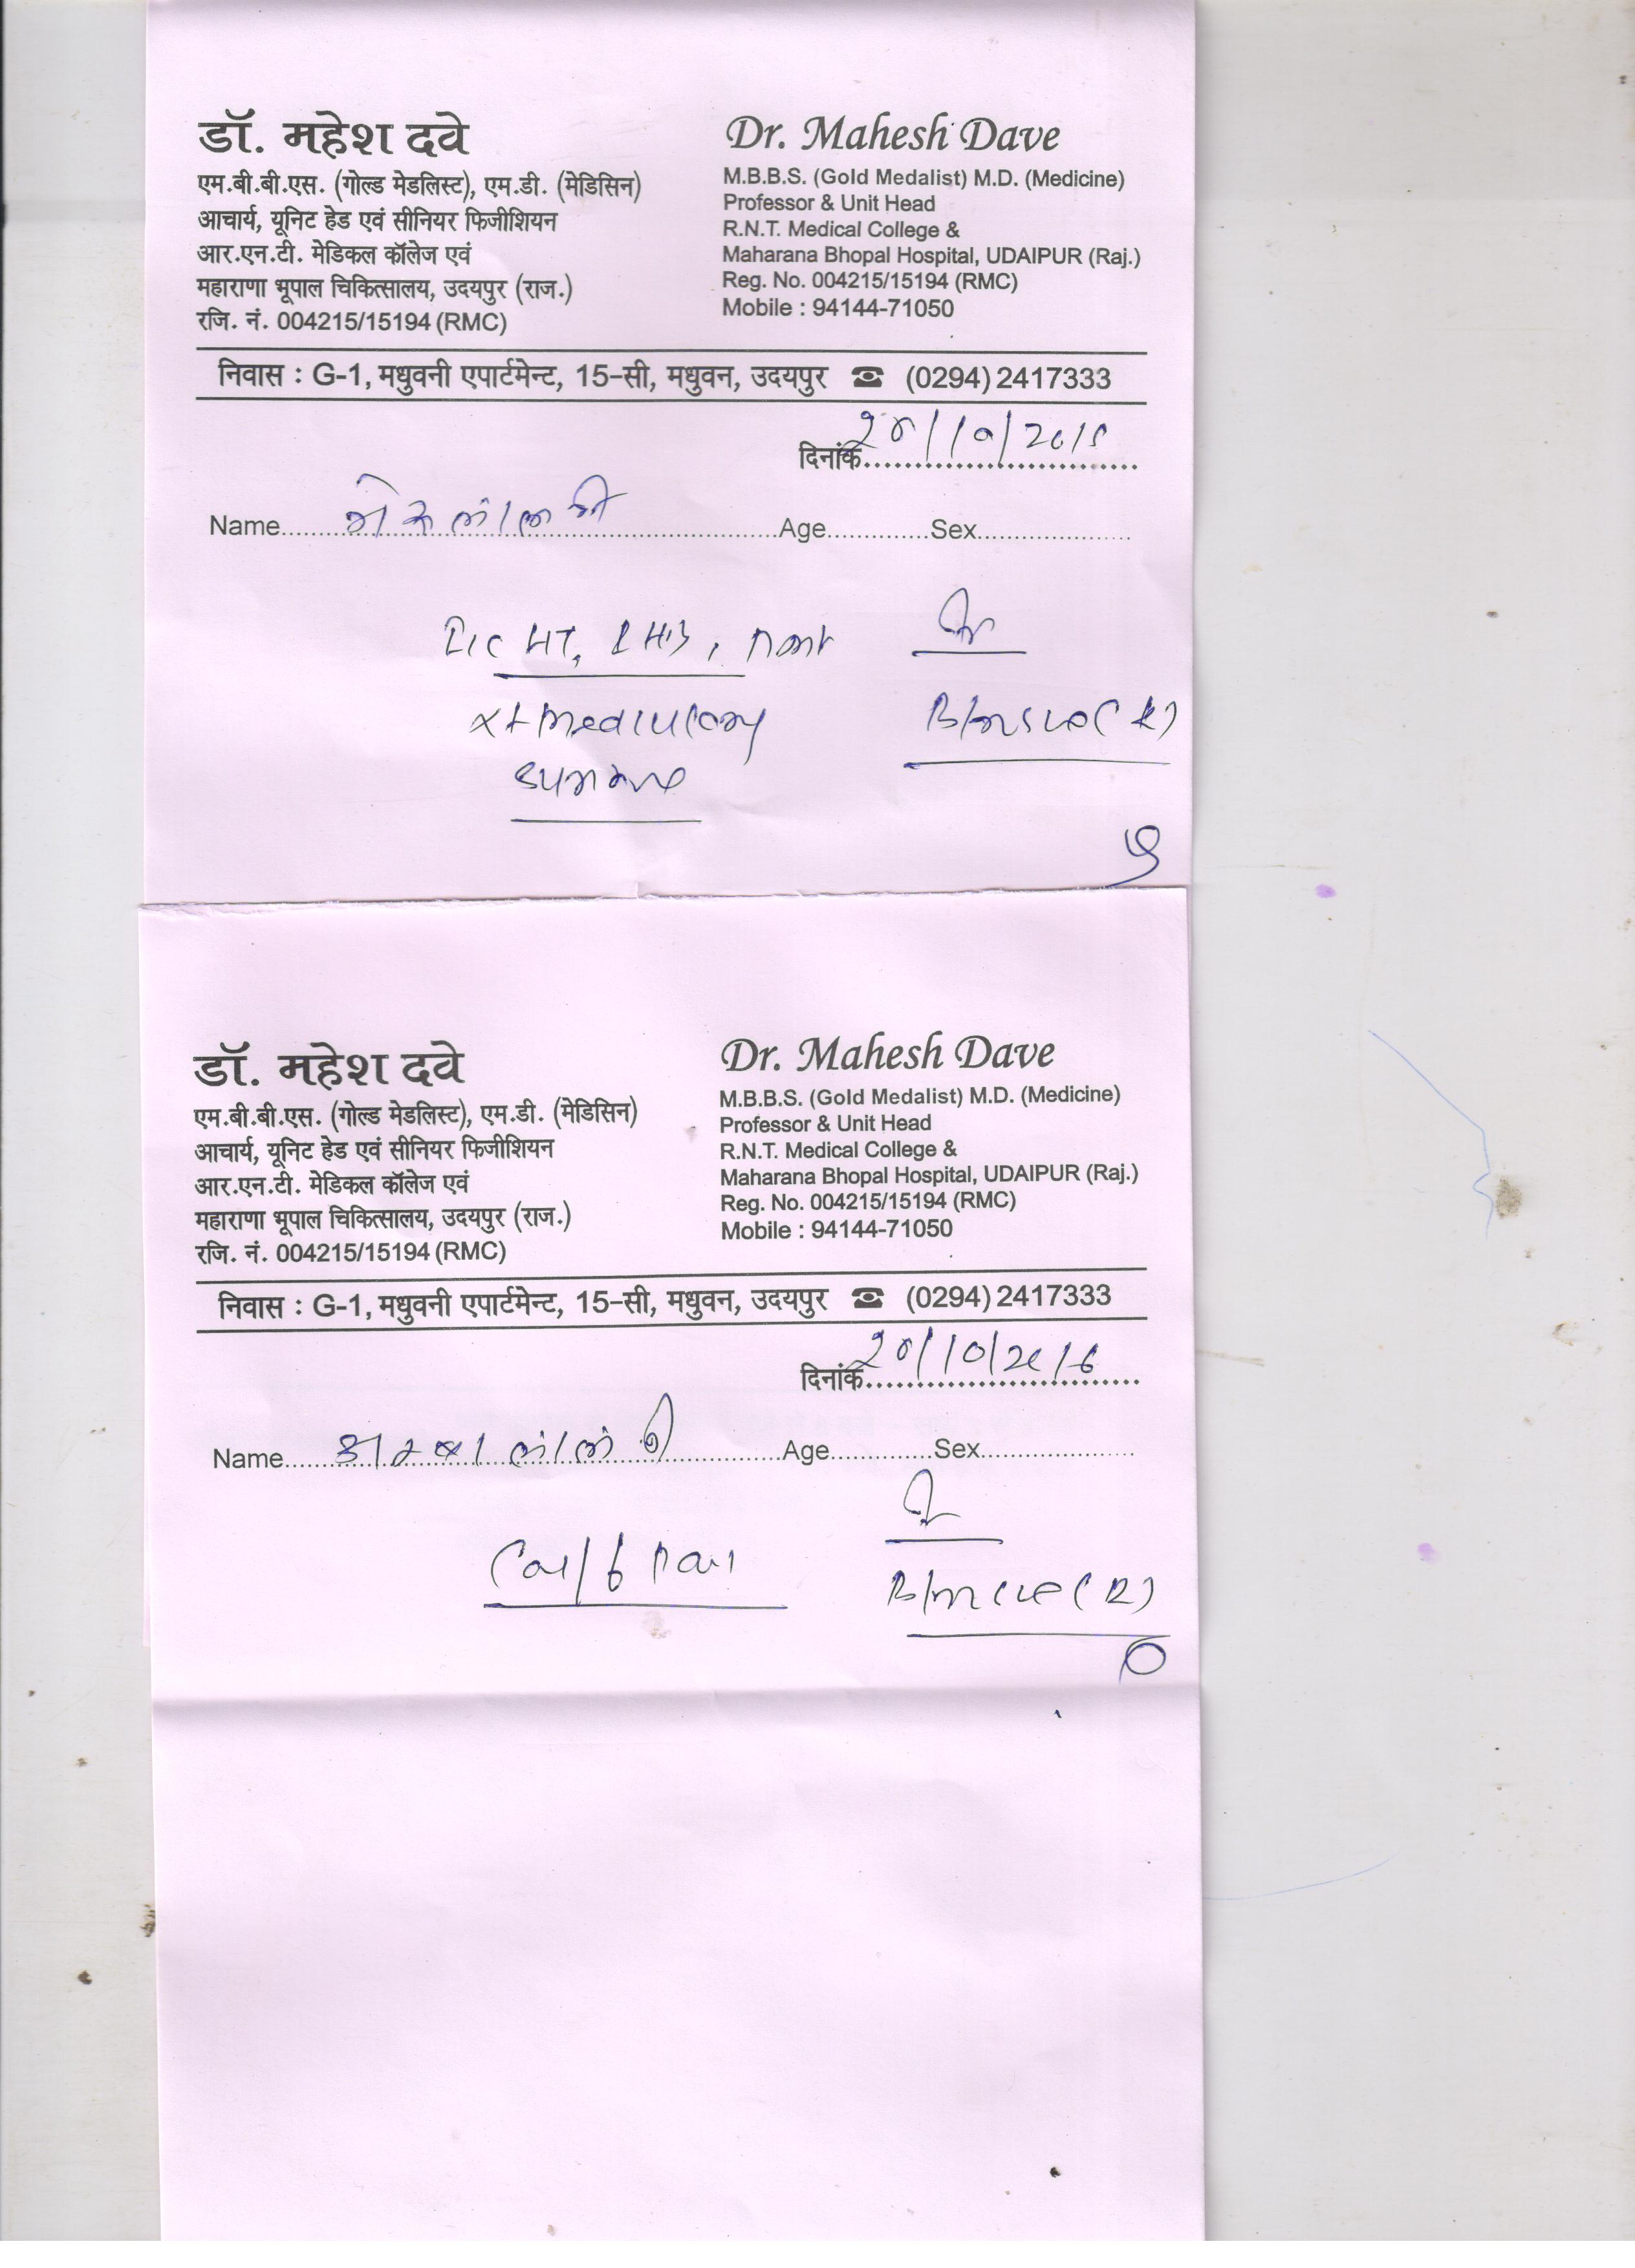 डॉ. महेश दवे
एम.बी.बी.एस. (गोल्ड मेडलिस्ट), एम.डी. (मेडिसिन)
आचार्य, यूनिट हेड एवं सीनियर फिजीशियन
आर.एन.टी. मेडिकल कॉलेज एवं
महाराणा भूपाल चिकित्सालय, उदयपुर (राज.)
रजि. नं. 004215/15194 (RMC)
Dr. Mahesh Dave
M.B.B.S. (Gold Medalist) M.D. (Medicine)
Professor & Unit Head
R.N.T. Medical College &
Maharana Bhopal Hospital, UDAIPUR (Raj.)
Reg. No. 004215/15194 (RMC)
Mobile : 94144-71050
निवास : G-1, मधुवनी एपार्टमेन्ट, 15-सी, मधुवन, उदयपुर ☎ (0294) 2417333
दिनांक
Name Age Sex
डॉ. महेश दवे
एम.बी.बी.एस. (गोल्ड मेडलिस्ट), एम.डी. (मेडिसिन)
आचार्य, यूनिट हेड एवं सीनियर फिजीशियन
आर.एन.टी. मेडिकल कॉलेज एवं
महाराणा भूपाल चिकित्सालय, उदयपुर (राज.)
रजि. नं. 004215/15194 (RMC)
Dr. Mahesh Dave
M.B.B.S. (Gold Medalist) M.D. (Medicine)
Professor & Unit Head
R.N.T. Medical College &
Maharana Bhopal Hospital, UDAIPUR (Raj.)
Reg. No. 004215/15194 (RMC)
Mobile : 94144-71050
निवास : G-1, मधुवनी एपार्टमेन्ट, 15-सी, मधुवन, उदयपुर ☎ (0294) 2417333
दिनांक
Name Age Sex